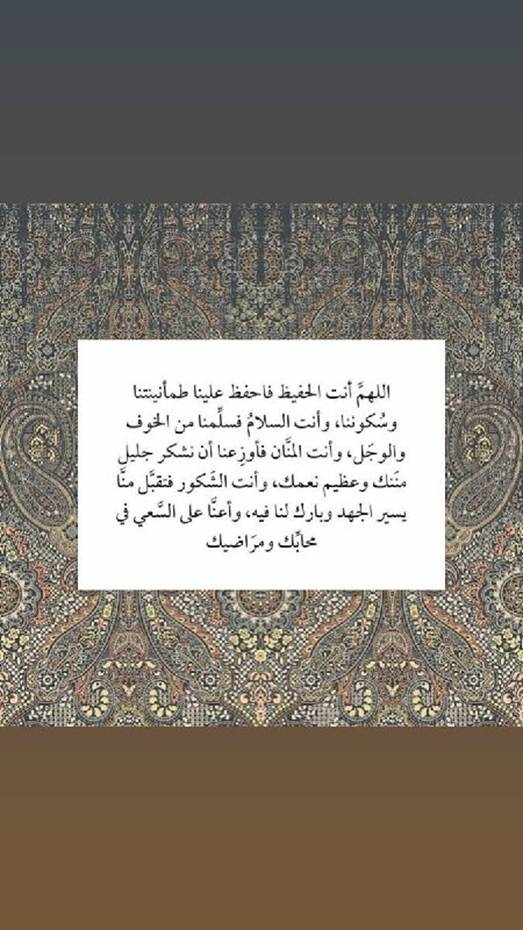 اللهمَّ أنت الحفيظ فاحفظ علينا طمأنينتنا
وسُكوننا، وأنت السلامُ فسلِّمنا من الخوف
والوجَل، وأنت المنَّان فأوزِعنا أن نشكر جليل
منَنك وعظيم نعمك، وأنت الشَكور فتقبَّل منَّا
يسير الجهد وبارك لنا فيه، وأعنَّا على السَّعي في
محابِّك ومرَاضيك